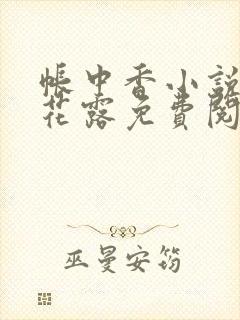 帐中香小説
花露免费阅
巫曼安筠